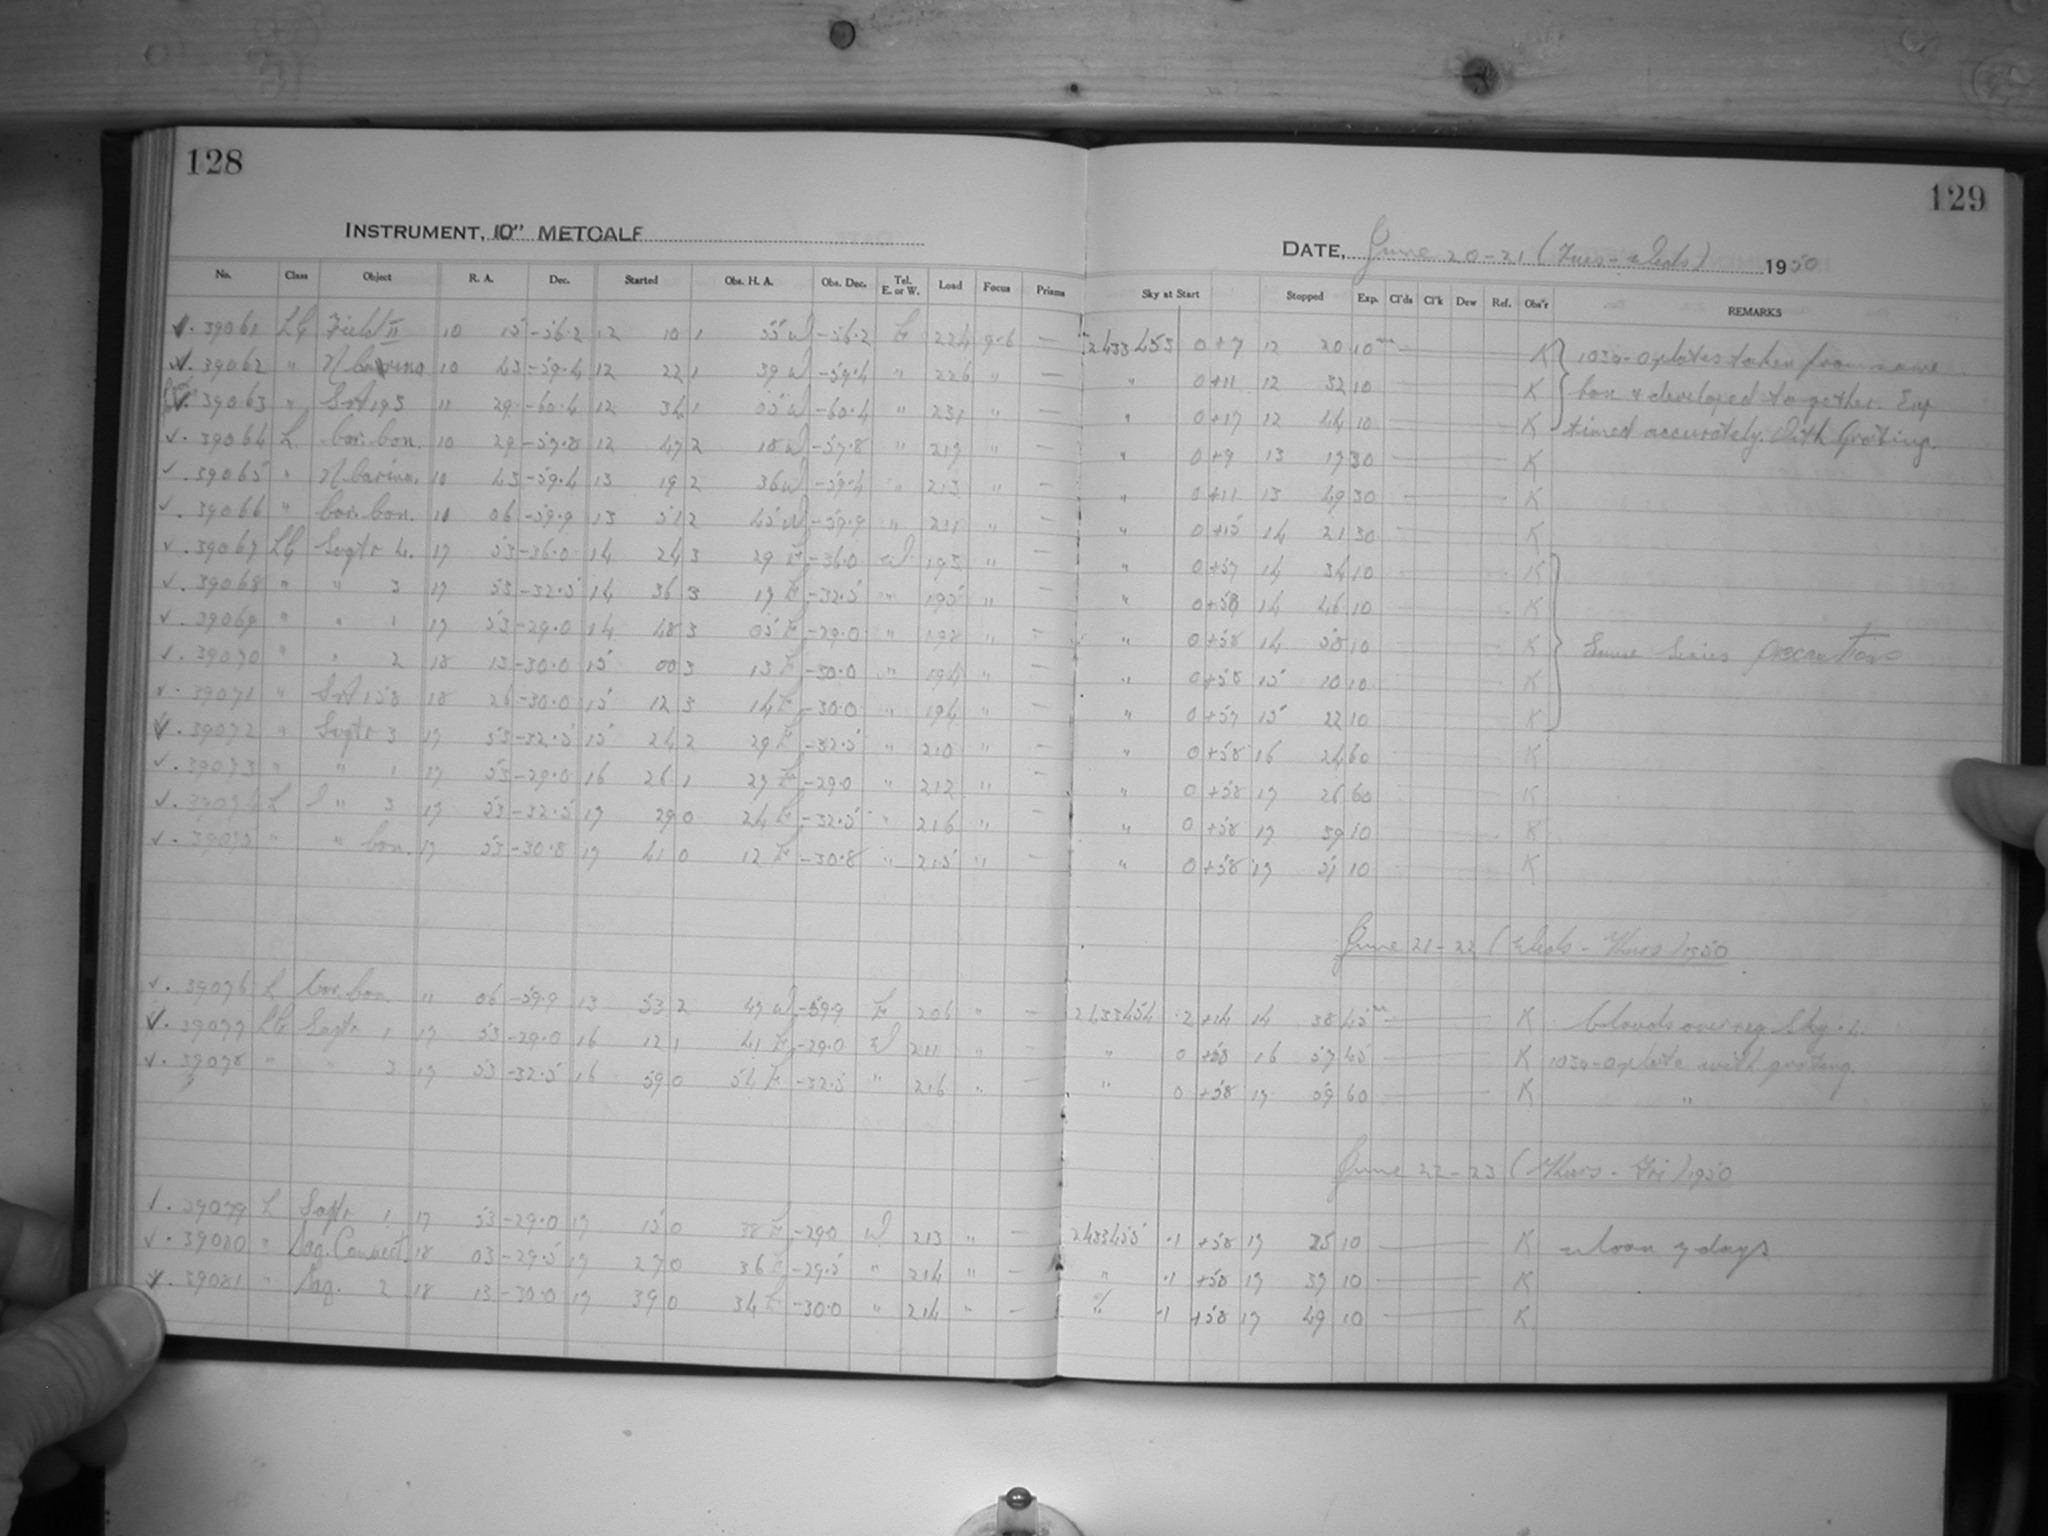 128
129
INSTRUMENT, 10" METCALF
DATE, June 20-21 (Tues-Weds) 1950
No. Class Object R. A. Dec. Started Obs. H. A. Obs. Dec. Tel. E. or W. Load Focus Prisms Sky at Start Stopped Exp. Cl'ds Cl'k Dew Ref. Obs'r REMARKS
✓. 39061 LG Field II 10 15 -56.2 12 10 1 55 W -56.2 E 224 9.6 — 2433453 0 +7 12 20 10m K
✓. 39062 " 10 43 -59.4 12 22 1 39 W -59.4 " 226 " — " 0 +11 12 32 10 K
✓. 39063 " 11 29 -60.4 12 34 1 05 W -60.4 " 231 " — " 0 +17 12 44 10 K
1030-O plates taken from same
box & developed together. Exp
timed accurately. With Grating.
✓. 39064 L 10 29 -57.8 12 47 2 18 W -57.8 " 217 " — " 0 +9 13 17 30 K
✓. 39065 " 10 43 -59.4 13 19 2 36 W -59.4 " 213 " — " 0 +11 13 49 30 K
✓. 39066 " 11 06 -59.9 13 51 2 45 W -59.9 " 211 " — " 0 +15 14 21 30 K
✓. 39067 LG Sagtr 4. 17 53 -36.0 14 24 3 29 E -36.0 W 193 " — " 0 +57 14 34 10 K
✓. 39068 " " 3 17 53 -32.5 14 36 3 17 E -32.5 " 195 " — " 0 +58 14 46 10 K
✓. 39069 " " 1 17 53 -29.0 14 48 3 05 E -29.0 " 198 " — " 0 +58 14 58 10 K
Same Series precautions
✓. 39070 " " 2 18 13 -30.0 15 00 3 13 E -30.0 " 194 " — " 0 +58 15 10 10 K
✓. 39071 " 18 26 -30.0 15 12 3 14 E -30.0 " 194 " — " 0 +57 15 22 10 K
✓. 39072 " Sagtr 3 17 53 -32.5 15 24 2 29 E -32.5 " 210 " — " 0 +58 16 24 60 K
✓. 39073 " " 1 17 53 -29.0 16 26 1 27 E -29.0 " 212 " — " 0 +58 17 26 60 K
✓. 39074 L " 3 17 53 -32.5 17 29 0 24 E -32.5 " 216 " — " 0 +58 17 39 10 K
✓. 39075 " " 17 53 -30.8 17 41 0 12 E -30.8 " 215 " — " 0 +58 17 51 10 K
June 21-22 (Weds-Thurs) 1950
✓. 39076 L " 06 -59.9 13 53 2 47 W -59.9 E 206 " — 2433454 .2 +14 14 38 45m K Clouds over neg Sky .4.
✓. 39077 LG Sagtr 1 17 53 -29.0 16 12 1 41 E -29.0 W 211 " — " 0 +58 16 57 45 K 1030-O plate with grating.
✓. 39078 " " 3 17 53 -32.5 16 59 0 54 E -32.5 " 216 " — " 0 +58 17 59 60 K "
June 22-23 (Thurs-Fri) 1950
✓. 39079 L Sagtr 1 17 53 -29.0 17 15 0 38 E -29.0 W 213 " — 2433455 .1 +58 17 25 10 K Moon 7 days
✓. 39080 " Sag. Connect. 18 03 -29.5 17 27 0 36 E -29.5 " 214 " — " .1 +58 17 37 10 K
✓. 39081 " Sag. 2 18 13 -30.0 17 39 0 34 E -30.0 " 214 " — " .1 +58 17 49 10 K